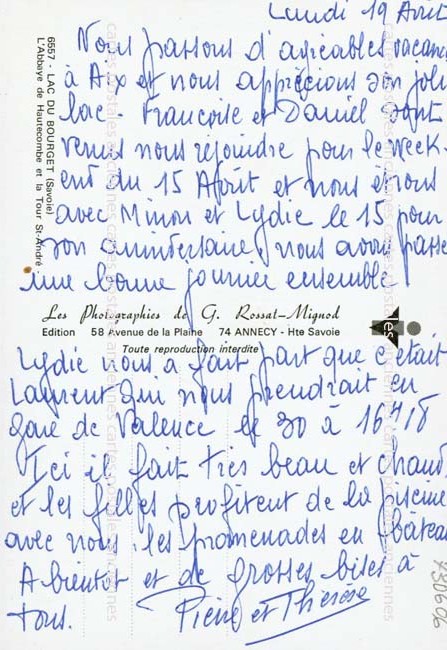 Lundi 19 Août
Nous passons d'agréables vacances
à Aix et nous apprécions son joli
lac. Françoise et Daniel sont
venus nous rejoindre pour le week-
end du 15 Août et nous étions
avec Minou et Lydie le 15 pour
son anniversaire, nous avons passé
une bonne journée ensemble
6557 - LAC DU BOURGET (Savoie)
L'Abbaye de Hautecombe et la Tour St-André
Les Photographies de G. Rossat-Mignod
Edition 58 Avenue de la Plaine 74 ANNECY - Hte Savoie
Toute reproduction interdite
Lydie nous a fait part que c'était
Laurent qui nous prendrait en
gare de Valence le 30 à 16H18
Ici il fait très beau et chaud
et les filles profitent de la piscine
avec nous. les promenades en bâteau
A bientôt et de grosses bises à
tous. Pierre et Thérèse